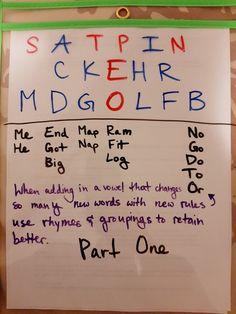 S A T P I N
C K E H R
M D G O L F B
Me End Map Ram No
He Got Nap Fit Go
Big Log Do
To
Or
When adding in a vowel that changes
so many new words with new rules
use rhymes & groupings to retain
better.
Part One